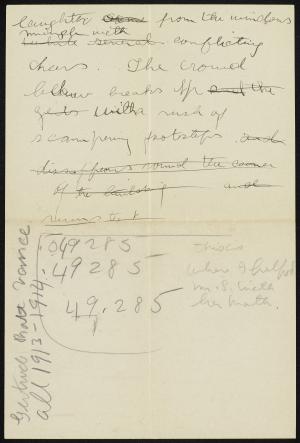 laughter from the windows
mingle with
conflicting
cheers. The crowd
below breaks up and the
with a rush of
scampering footsteps. and
disappears round the corner
of the and
049285
49285
49.285
this is
where I helped
Mr. S. with
her math.
Gertrude
all 1913-1914.